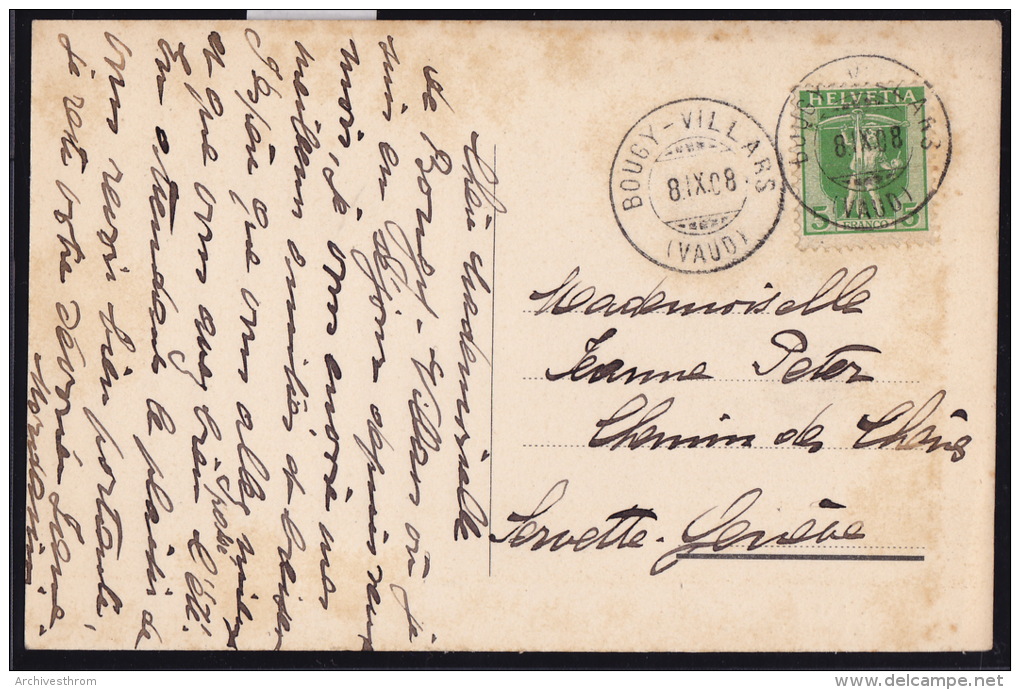 Chère Mademoiselle
de Bougy-Villars où je
suis en séjour depuis
mois, je vous envoie mes
meilleures amitiés et baisers
J'espère que vous allez mieux
et que vous avez bien passé l'été.
En attendant le plaisir de
vous revoir bien portante
je reste votre dévouée
BOUGY-VILLARS
8.IX.08
(VAUD)
BOUGY-VILLARS
8.IX.08
(VAUD)
HELVETIA
5 FRANCO 5
Mademoiselle
Jeanne Peter
Chemin des Chênes
Servette-Genève
Archivesthrom
delcampe.net